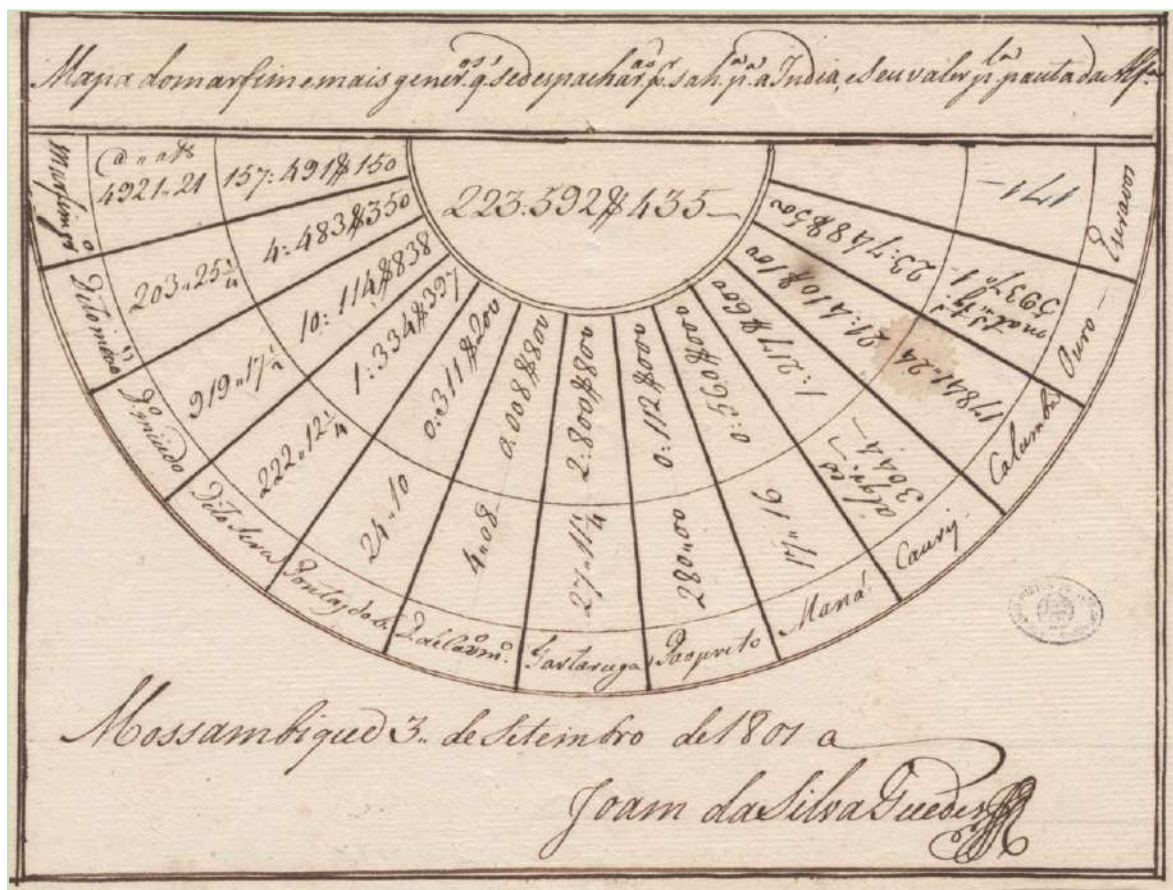 Mapa do marfim e mais gener.os q. se despachar.ão p.r sah. p.a a India, e seu valor p.la pauta da Alf.a
223.592$435
Marfim gr.o
@ " a
4921 " 21
157:491$150
D.to meão
203 " 25
4:483$350
D.o miudo
919 " 17
10:114$838
Dito Sera
222 " 12
1:334$397
Pontas de
24 " 10
0:311$200
D. de
4 " 08
0:008$800
Tartaruga
27 " 11 1/4
2:800$800
Pao preto
280 " 00
0:112$000
Maná
17 " 16
0:560$000
Caury
3044
1:217$600
Calumba
17841 " 24
21:410$100
Ouro
5937
23:748$500
Escravos
171
Mossambique 3 de Setembro de 1801 a
Joam da Silva Guedes